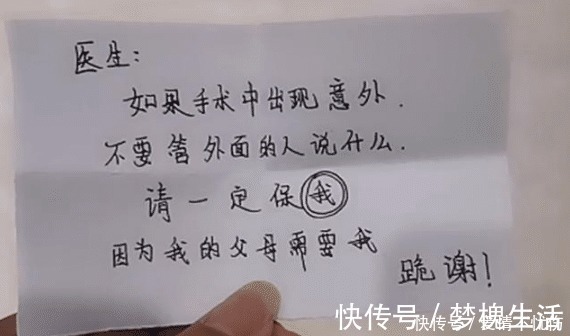 医生:
如果手术中出现意外.
不要管外面的人说什么.
请一定保我
因为我的父母需要我
跪谢!
快传号/梦槐生活